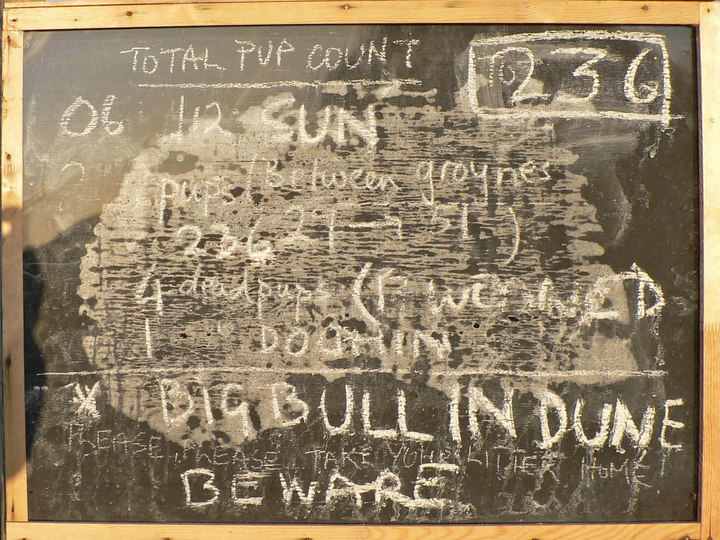 TOTAL PUP COUNT 236
06 /12 SUN
pups (Between groynes
236 21 → 51)
4 dead pups (
1 " DOLPHIN
* BIG BULL IN DUNE
PLEASE, PLEASE TAKE YOUR LITTER HOME!
BEWARE